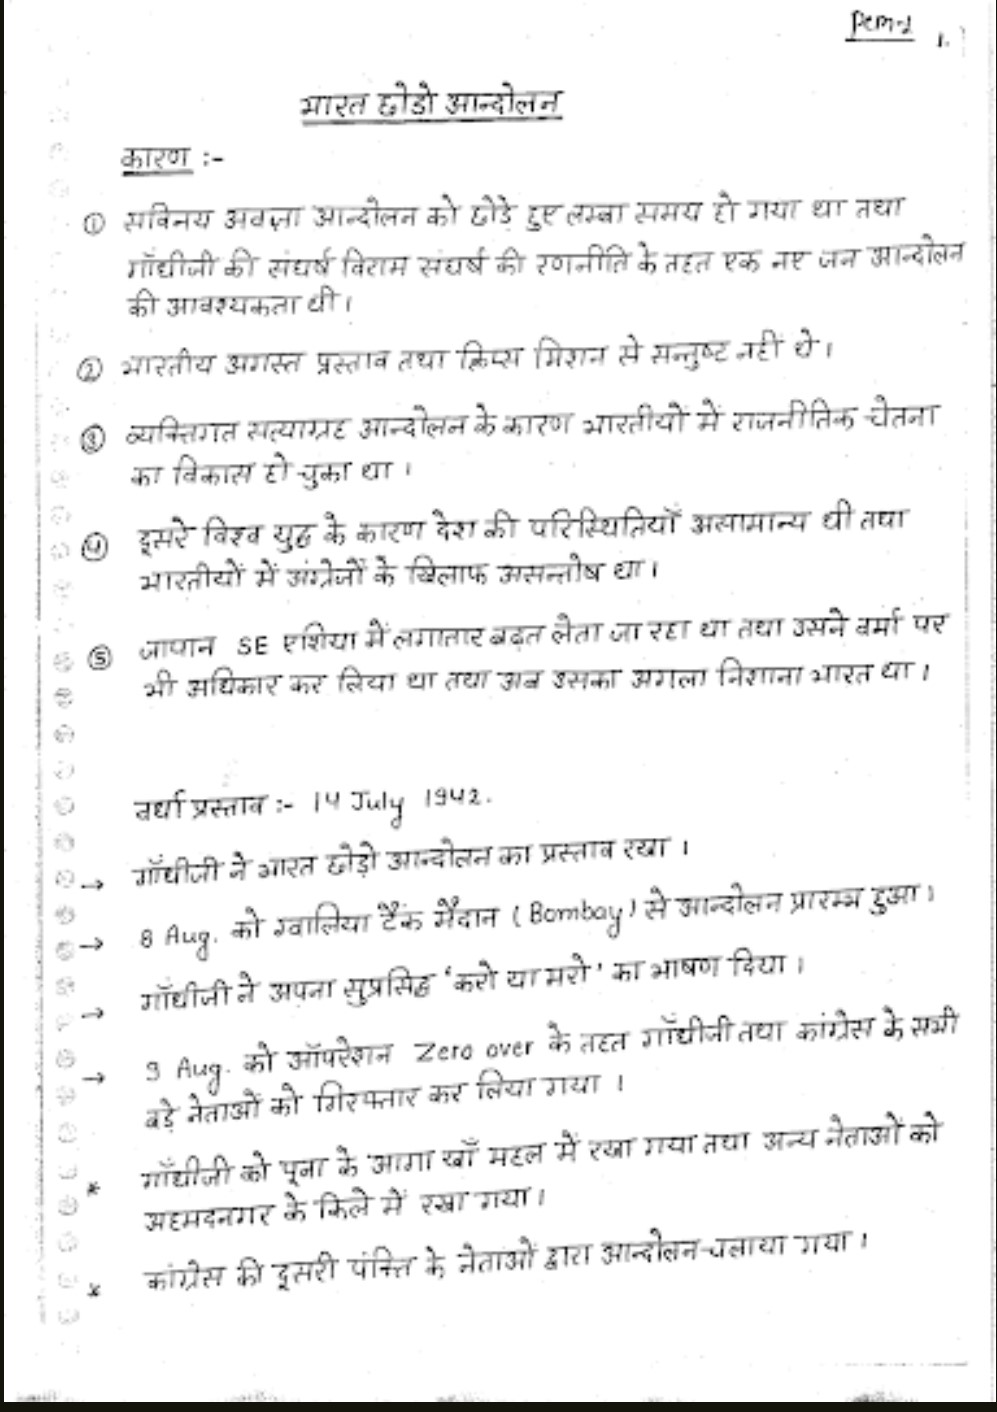 1.
भारत छोडो आन्दोलन
कारण :-
① सविनय अवज्ञा आन्दोलन को छोडे हुए लम्बा समय हो गया था तथा
गाँधीजी की संघर्ष विराम संघर्ष की रणनीति के तहत एक नए जन आन्दोलन
की आवश्यकता थी।
② भारतीय अगस्त प्रस्ताव तथा क्रिप्स मिशन से सन्तुष्ट नहीं थे।
③ व्यक्तिगत सत्याग्रह आन्दोलन के कारण भारतीयों में राजनीतिक चेतना
का विकास हो चुका था।
④ दूसरे विश्व युद्ध के कारण देश की परिस्थितियाँ असामान्य थी तथा
भारतीयों में अंग्रेजों के खिलाफ असन्तोष था।
⑤ जापान SE एशिया में लगातार बढ़त लेता जा रहा था तथा उसने बर्मा पर
भी अधिकार कर लिया था तथा अब उसका अगला निशाना भारत था।
वर्धा प्रस्ताव :- 14 July 1942.
→ गाँधीजी ने भारत छोड़ो आन्दोलन का प्रस्ताव रखा।
→ 8 Aug. को ग्वालिया टैंक मैदान (Bombay) से आन्दोलन प्रारम्भ हुआ।
→ गाँधीजी ने अपना सुप्रसिद्ध 'करो या मरो' का भाषण दिया।
→ 9 Aug. को ऑपरेशन Zero over के तहत गाँधीजी तथा कांग्रेस के सभी
बड़े नेताओं को गिरफ्तार कर लिया गया।
* गाँधीजी को पूना के आगा खाँ महल में रखा गया तथा अन्य नेताओं को
अहमदनगर के किले में रखा गया।
* कांग्रेस की दूसरी पंक्ति के नेताओं द्वारा आन्दोलन चलाया गया।